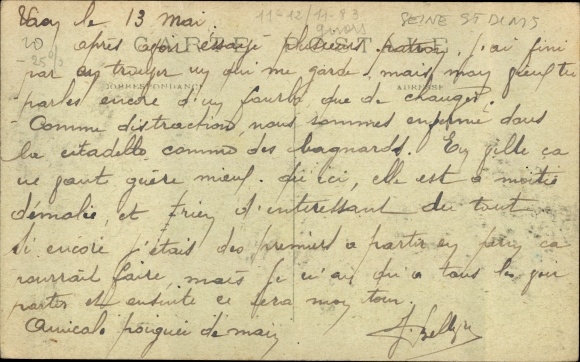 le 13 mai.
11-12/11-83
SEINE ST DENIS
20
- 25%
après avoir essayé plusieurs j'ai fini
CARTE POSTALE
par en trouver un qui me garde, mais mon vieux tu
CORRESPONDANCE
ADRESSE
parles encore d'un fourbi que de changer.
- Comme distraction, nous sommes enfermé dans
la citadelle comme des bagnards. En ville ça
ne vaut guère mieux qu'ici, elle est à moitié
démolie, et rien d'interessant du tout
Si encore j'étais des premiers a partir en perm ça
pourrait faire, mais je n'ai qu'a tous les
partir et ensuite ce sera mon tour.
Amicale poignée de main